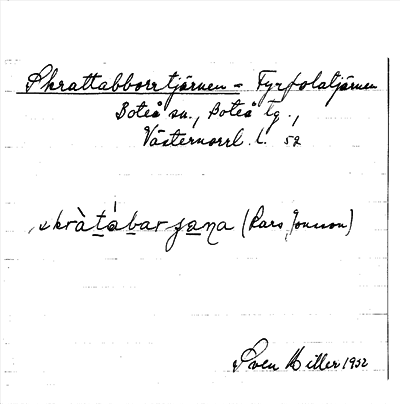 Skrattabborrtjärnen = Fyrfolatjärnen
Boteå sn., Boteå tg.,
Västernorrl. L. 52
skràtábarʃana (Lars Jonsson)
Sven Hitler 1932